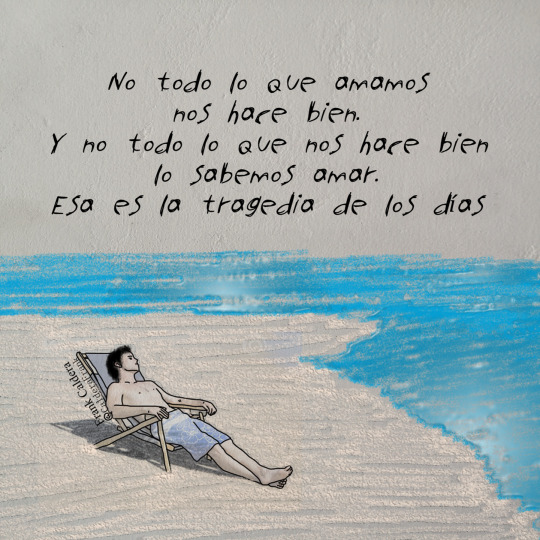 No todo lo que amamos
nos hace bien.
Y no todo lo que nos hace bien
lo sabemos amar.
Esa es la tragedia de los días
Frank Caldera
@Calderaifrank